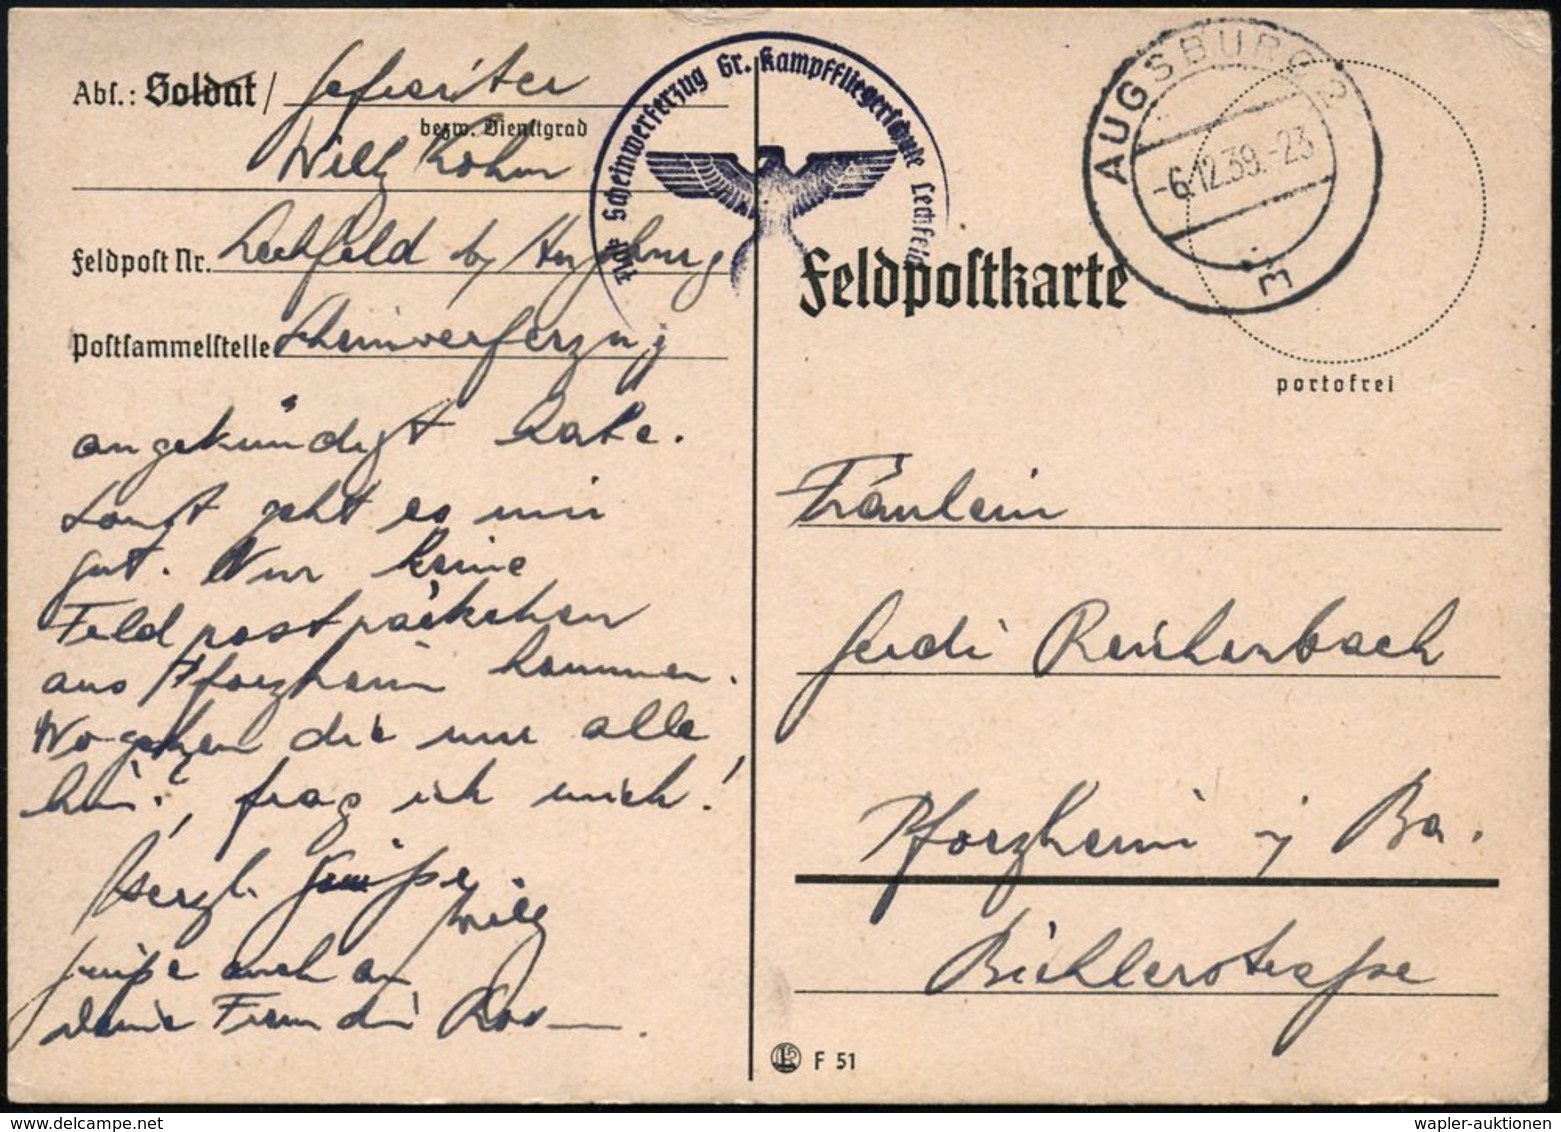 Abs.: Soldat / Gefreiter
bezw. Dienstgrad
Willy Kohm
Feldpost Nr. Lechfeld by Augsburg
Postsammelstelle Scheinwerferzug
angekündigt habe.
Sonst geht es mir
gut. Nur keine
Feldpostpäckchen
aus Pforzheim kommen.
Wo gehen die nur alle
hin?, frag ich mich!
Herzl. Grüße
Willy
Grüße auch an
deine Freundin
Scheinwerferzug Gr. Kampffliegerschule Lechfeld
AUGSBURG 2
-6.12.39.-23
Feldpostkarte
portofrei
Fräulein
Gerdi Reichenbach
Pforzheim i/ Ba.
Bichlerstraße
F 51
wapler-auktionen